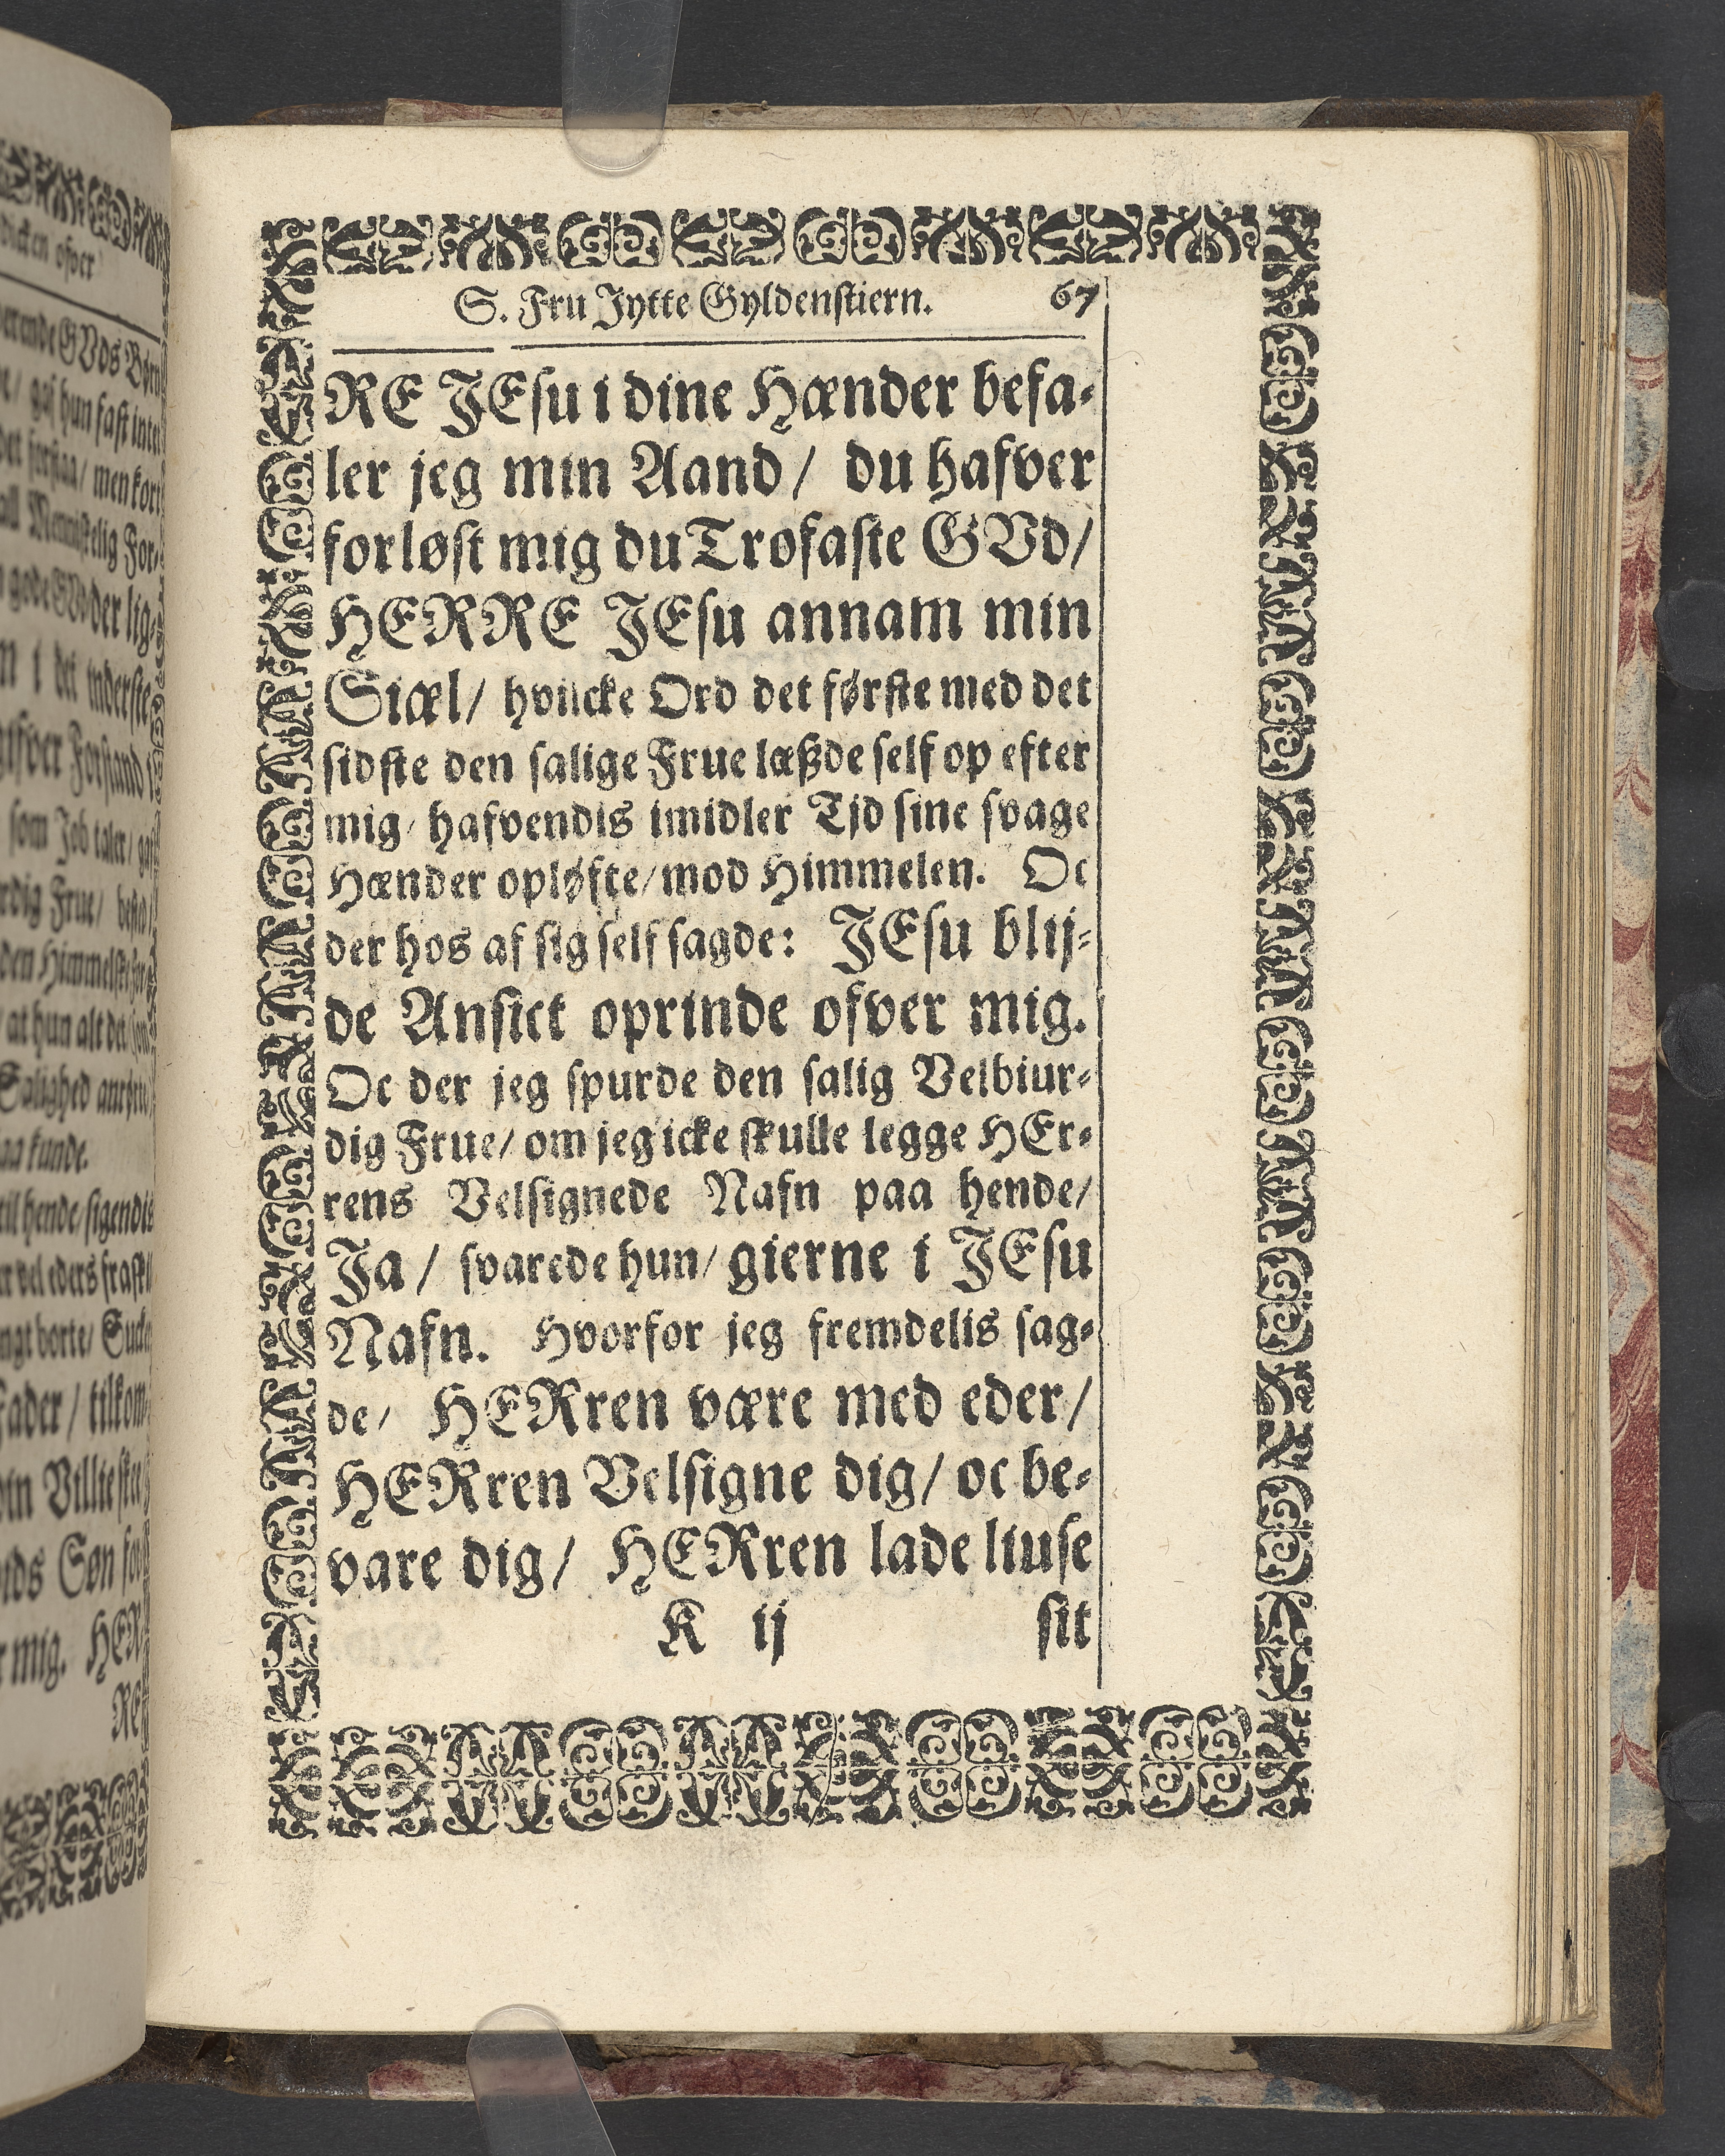 S. Fru Jytte Gyldenstiern. 67
RE JEsu i dine Hænder befa-
ler jeg min Aand / du hafver
forløst mig du Trofaste GVd /
HERRE JEsu annam min
Siæl / hvilcke Ord det første med det
sidste den salige Frue læßde self op efter
mig / hafvendis imidler Tjd sine svage
Hænder opløfte / mod Himmelen. Oc
der hos af sig self sagde: JEsu blij-
de Ansict oprinde ofver mig.
Oc der jeg spurde den salig Velbiur-
dig Frue / om jeg icke skulle legge HEr-
rens Velsignede Nafn paa hende /
Ja / svarede hun / gierne i JEsu
Nafn. Hvorfor jeg fremdelis sag-
de / HERren være med eder /
HERren Velsigne dig / oc be-
vare dig / HERren lade liuse
K ij sit